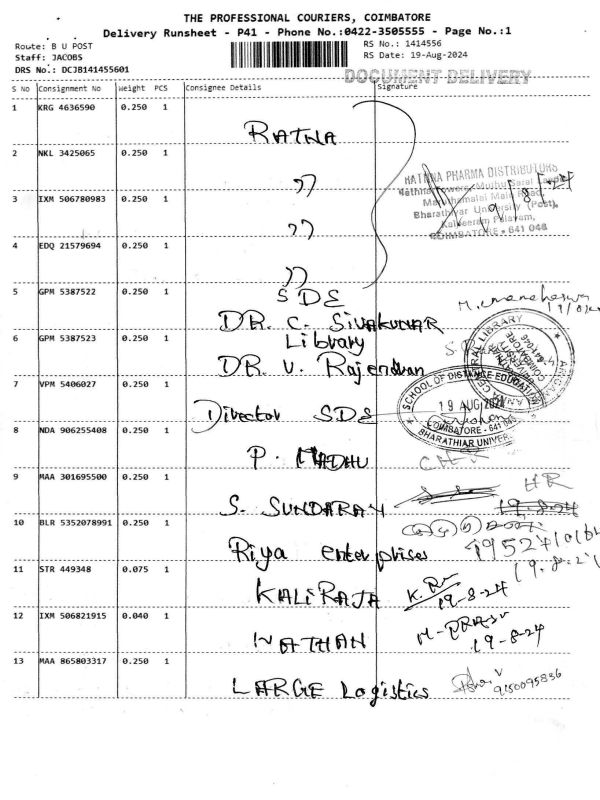 THE PROFESSIONAL COURIERS, COIMBATORE
Delivery Runsheet - P41 - Phone No.:0422-3505555 - Page No.:1
Route: B U POST
Staff: JACOBS
DRS No.: DCJB141455601
RS No.: 1414556
RS Date: 19-Aug-2024
DOCUMENT DELIVERY
S No Consignment No Weight PCS Consignee Details Signature
1 KRG 4636590 0.250 1 RATNA
2 NKL 3425065 0.250 1 ,,
3 IXM 506780983 0.250 1 ,,
4 EDQ 21579694 0.250 1 ,,
RATHNA PHARMA DISTRIBUTORS
Maruthamalai Main Road,
Bharathiyar University (Post),
Kalveeram Palayam,
COIMBATORE - 641 046
5 GPM 5387522 0.250 1 SDE
DR. C. SIVAKUMAR
6 GPM 5387523 0.250 1 Library
DR V. Rajendran
7 VPM 5406027 0.250 1 Director SDE
SCHOOL OF DISTANCE EDUCATION
19 AUG 2024
COIMBATORE - 641 046
BHARATHIAR UNIVER
8 NDA 906255408 0.250 1 P. MADHU
9 MAA 301695500 0.250 1 S. SUNDARAM
HR
19.8.24
10 BLR 5352078991 0.250 1 Riya enterprises
11 STR 449348 0.075 1 KALIRAJA
19-8-24
12 IXM 506821915 0.040 1 NATHAN
19-8-24
13 MAA 865803317 0.250 1 LARGE Logistics
9150095836